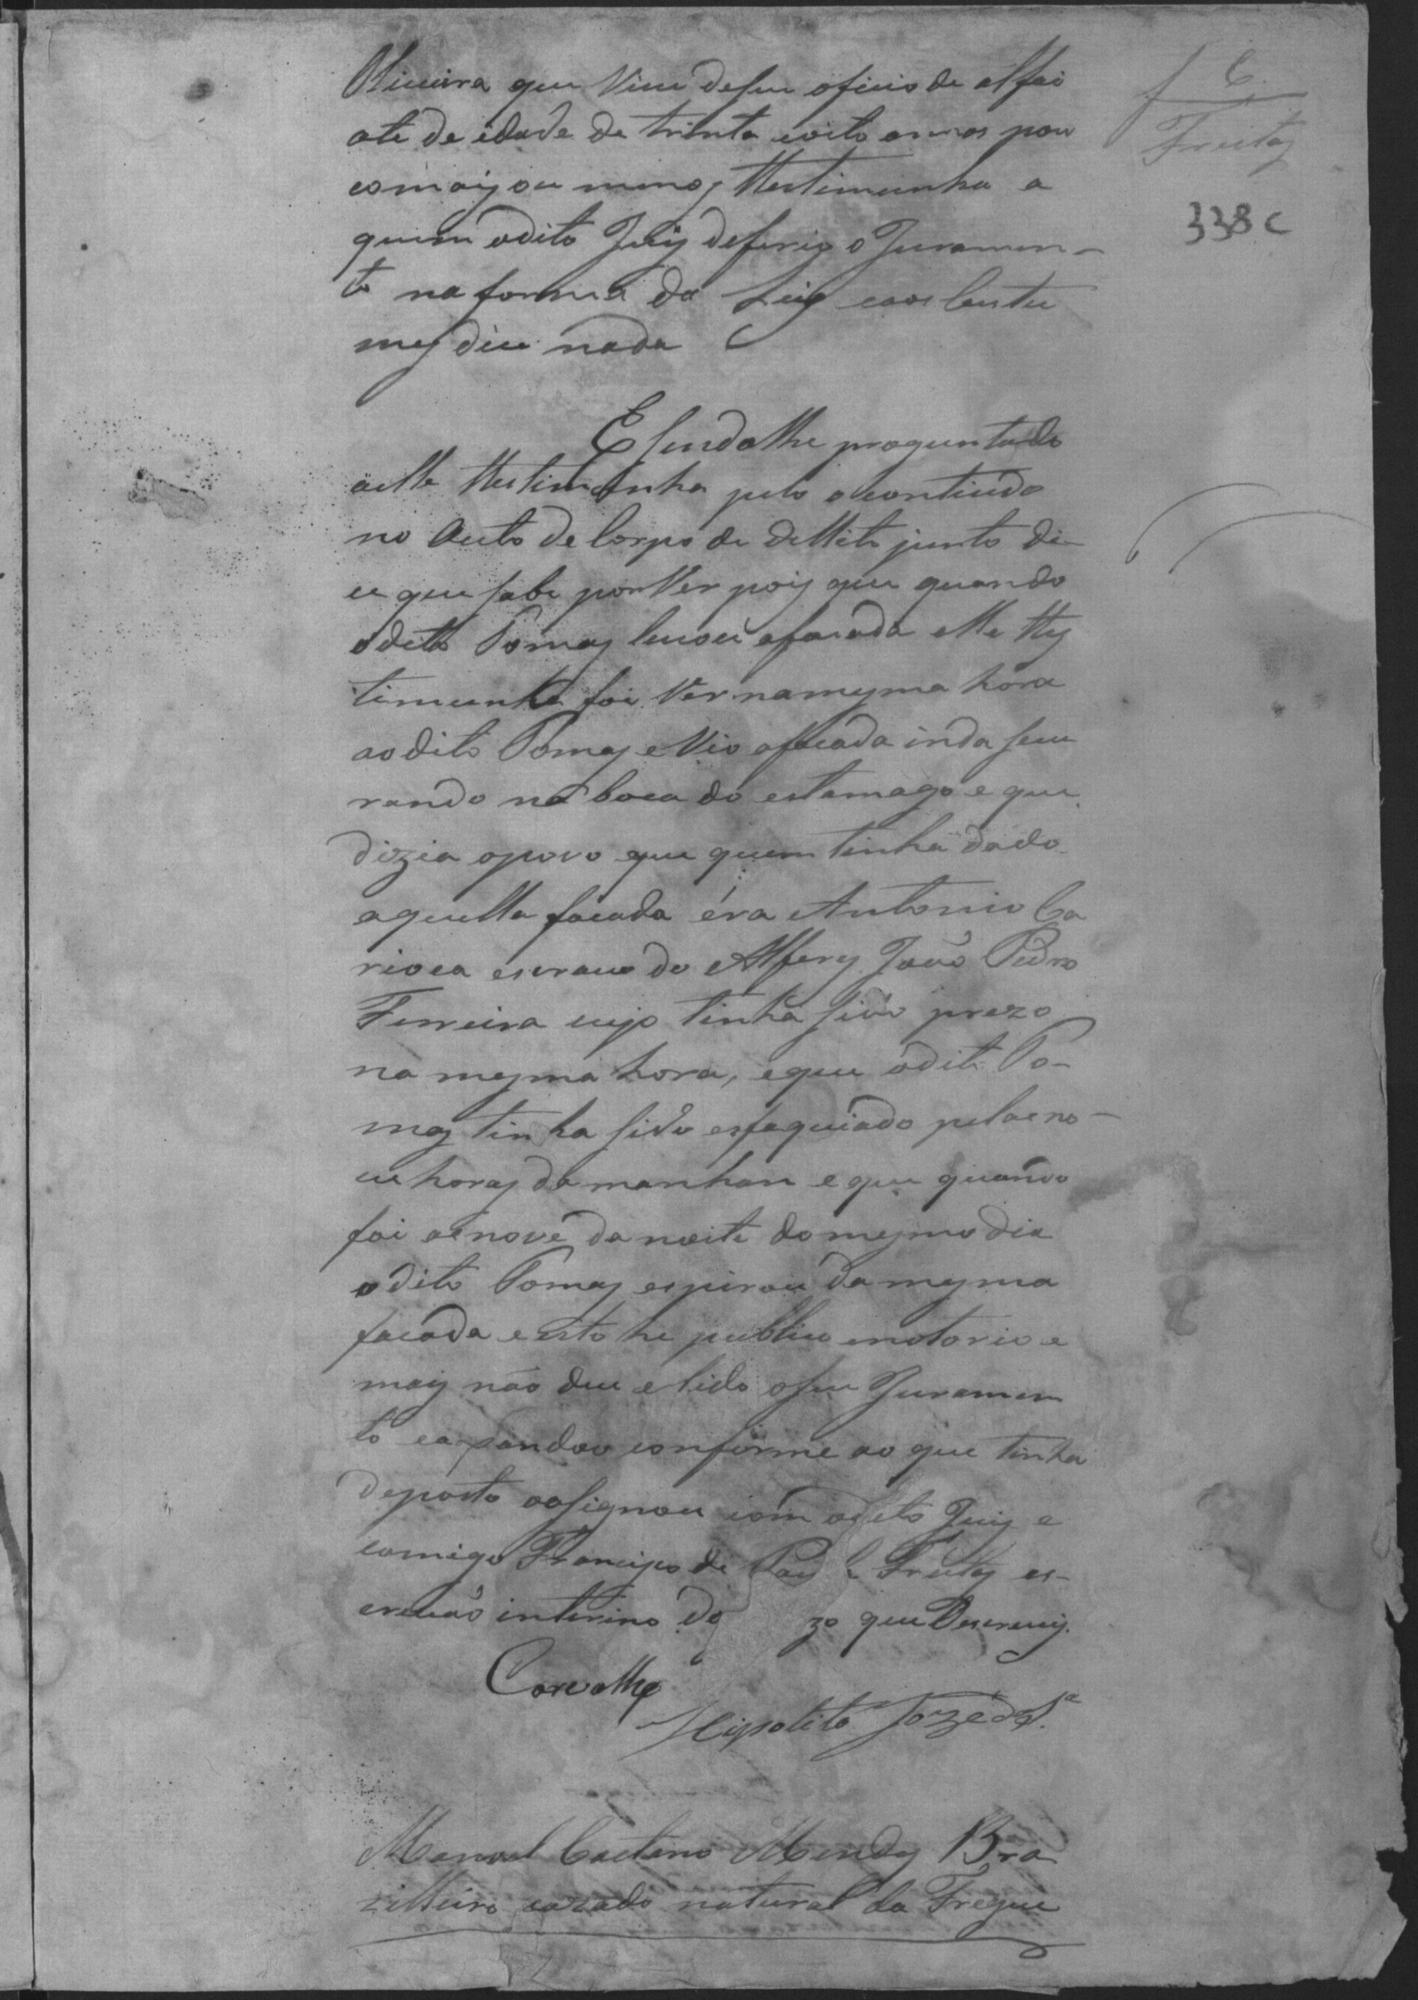 f 6
Freitas
338c
Oliveira que vive deseu oficio de alfai
ate de idade de trinta eoito annos pou
comais ou menos testemunha a
quem odito Juiz deferio o Juramen-
to na forma da Leiz eaos custu
mes dice nada
E sendolhe proguntado
aelle testimunha pelo ocontiudo
no Auto de Corpo de dellito junto di
ce que sabe porver pois que quando
o dito Tomas levou afacada elle tes
timunha foi ver namesma hora
ao dito Tomas e vio afacada inda seu
rando na boca do estamago e que
dizia opovo que quem tinha dado
aquella facada éra Antonio Ca
rioca escravo do Alferes João Pedro
Ferreira cujo tinha sido prezo
na mesma hora, eque odito To-
mas tinha sido esfaquiado pelas no-
ve horas da manhan e que quando
foi asnove da noite do mesmo dia
o dito Tomas espirou da mesma
facada e isto he publico enotorio e
mais não dice e lido oseu Juramen
to eaxandoo conforme ao que tinha
deposto assignou com odito Juiz e
comigo Francisco de Pau Freitas es-
crivão interino do zo que Oescrevij.
Carvalho
Hipolito Jozé da S.ª
Manoel Caetano Mendes Bra
zilleiro cazado natural da Fregue